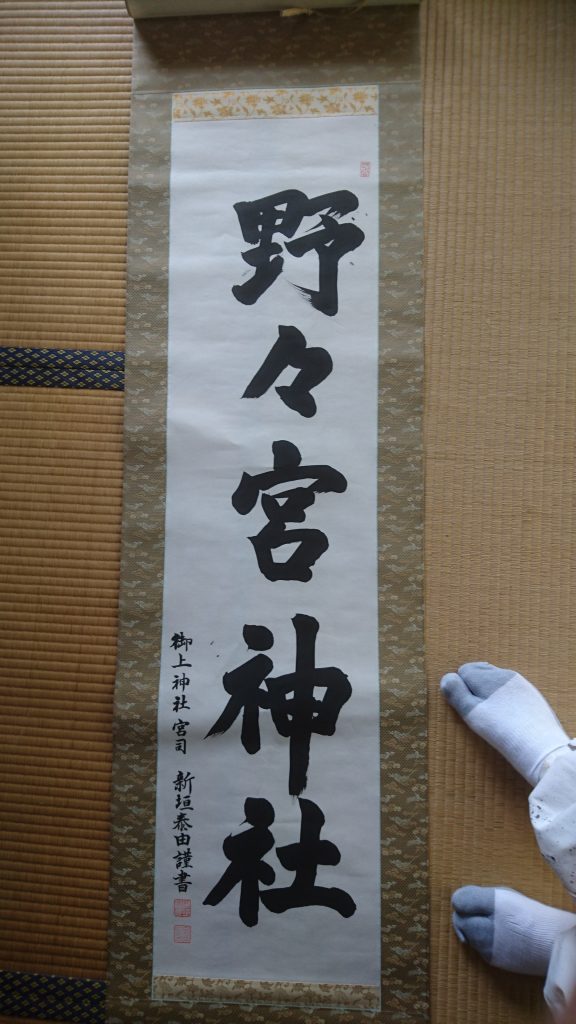 野々宮神社
御上神社 宮司 新垣泰由謹書